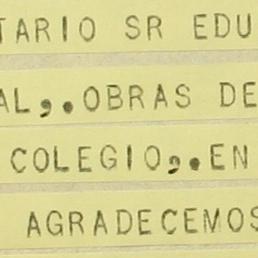 TARIO SR EDU
AL,.OBRAS DE
COLEGIO,.EN
AGRADECEMOS